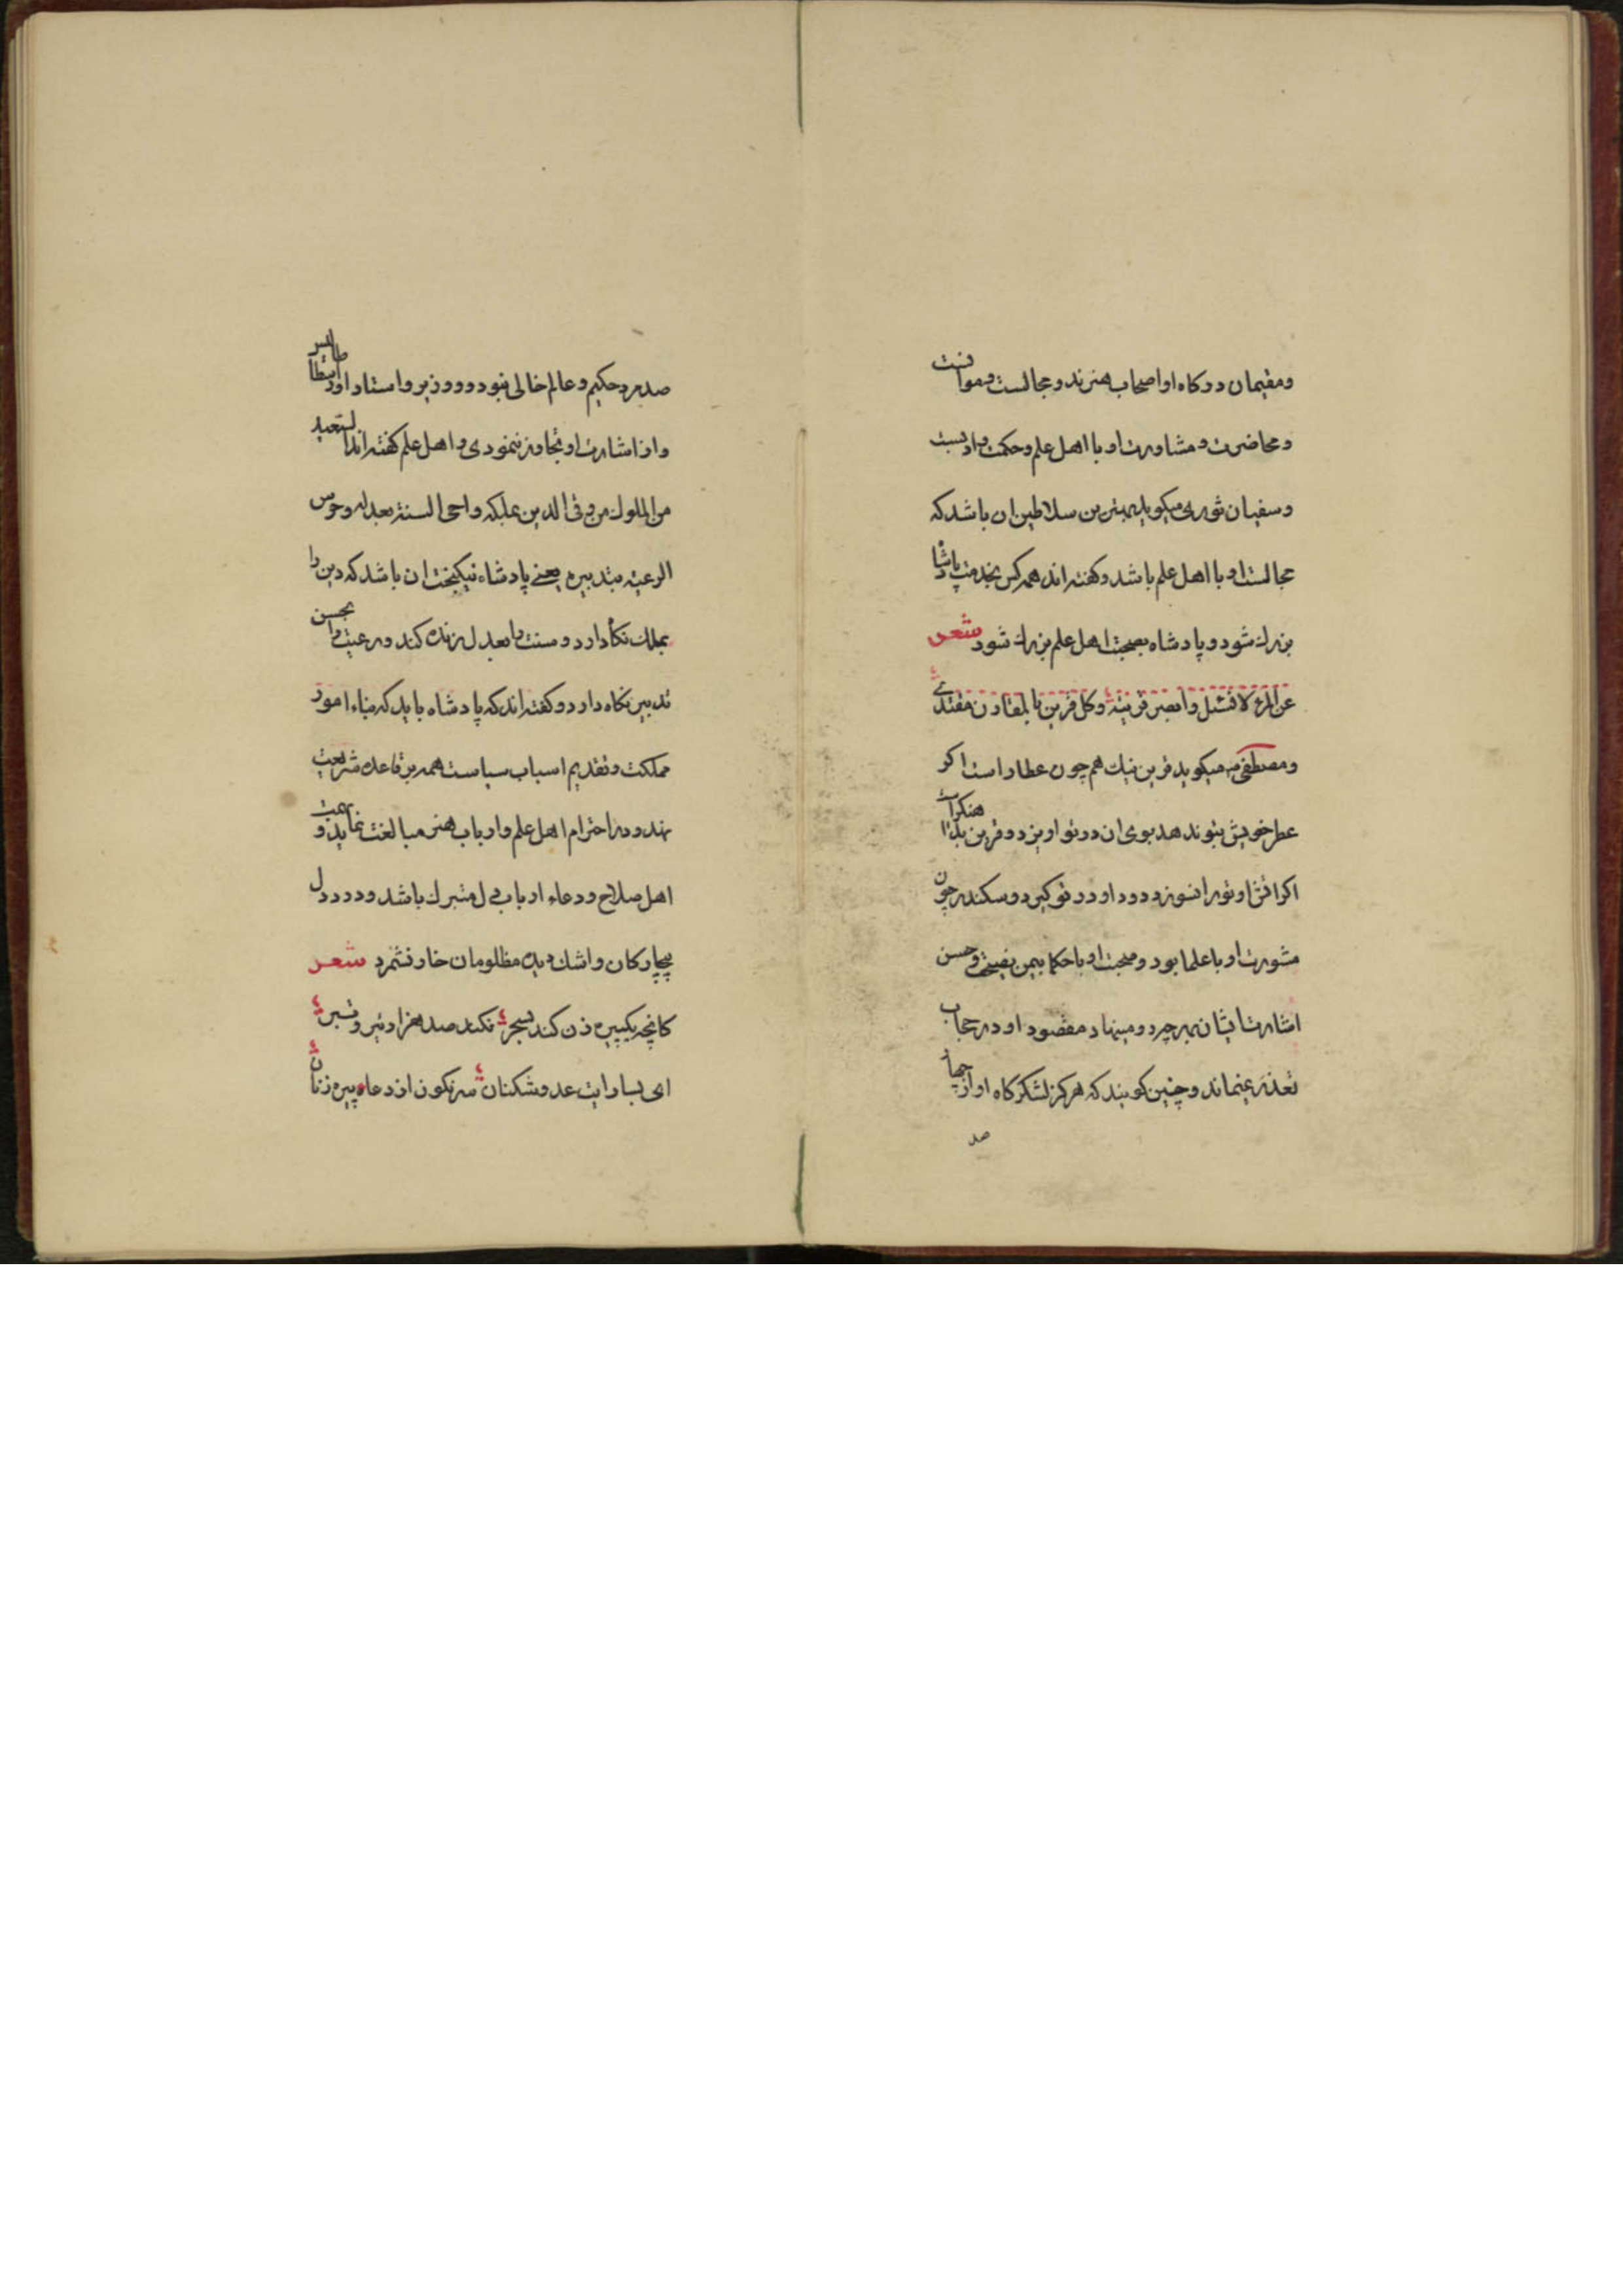 ومقیمان درکاه او اصحاب هنرند و مجالست و موانست
و محاضرت و مشاورت او با اهل علم و حکمت و ادبست
و سفیان ثوری میکوید بهترین سلاطین ان باشد که
مجالست او با اهل علم باشد و کفته اند همه کس بخدمت پادشاه
بزرك شود و پادشاه بصحبت اهل علم بزرك شود شعر
عن المرء لا تسئل وابصر قرینه وکل قرین بالمقارن مقتدی
و مصطفی میکوید قرین نیك هم چون عطار است اکر
عطر خویش بتو ندهد بوی ان در تو اویزد و قرین بد
اکر اتش او تو را نسوزد دود او در تو کیرد و سکندر چون
مشورت او با علما بود و صحبت او با حکما بیمن نصیحت و حسن
اشارت ایشان بهر چه رو مینهاد مقصود او در حجاب
تعذر نمیماند و چنین کویند که هرکز لشکرکاه او از چهار
صد
صد مرد حکیم و عالم خالی نبود و وزیر و استاد او ارسطاطالیس
و از اشارت او تجاوز ننمودی و اهل علم کفته اند السعید
من الملوك من وقی الدین بملکه و احی السنة بعدله و حرس
الرعیة بتدبیره یعنی پادشاه نیکبخت ان باشد که دین را
بملك نکاه دارد و سنت را بعدل زنده کند و رعیت را بحسن
تدبیر نکاه دارد و کفته اند که پادشاه باید که بناء امور
مملکت و تقدیم اسباب سیاست همه بر قاعده شریعت
نهد و در احترام اهل علم و ارباب هنر مبالغت نماید و
اهل صلاح و دعاء ارباب دل متبرك باشد و درد دل
بیچارکان و اشك دیده مظلومان خار نشمرد شعر
کانچه یکپیره زن کند بسحر نکند صد هزار تیر و تبر
ای بسا رایت عدو شکنان سرنکون از دعاء پیره زنان